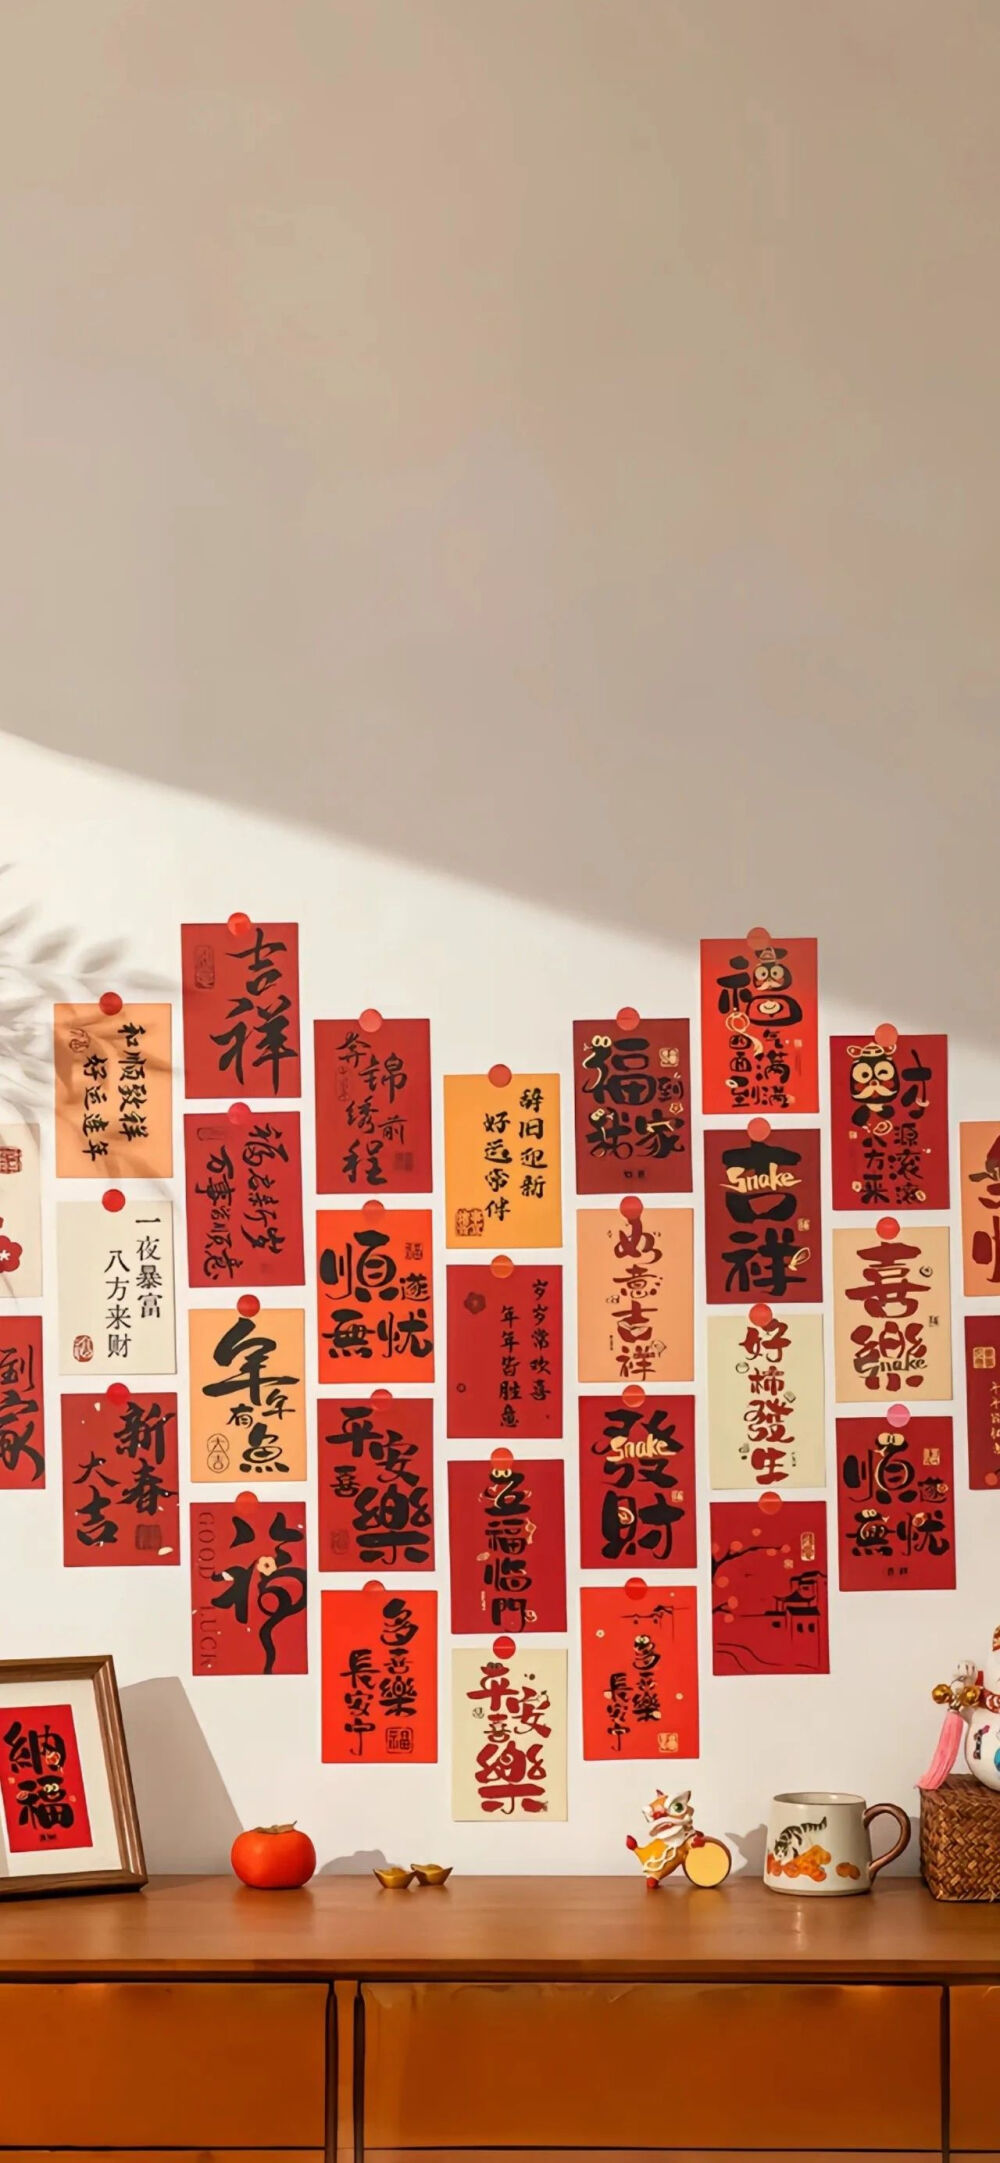 和顺致祥
好运连年
一夜暴富
八方来财
新春
大吉
到
家
吉祥
福启新岁
万事顺意
年年
有魚
大吉
福
GOOD LUCK
奔
锦绣
前程
順遂
無忧
平安
喜樂
多喜樂
長安宁
辞旧迎新
好运常伴
岁岁常欢喜
年年皆胜意
五福临門
平安
喜樂
福到
我家
如意吉祥
Snake
發財
多喜樂
長安宁
福气满满
面面到
吉祥
Snake
好柿發生
财源滚滚
八方来
喜樂
Snake
順遂
無忧
納福